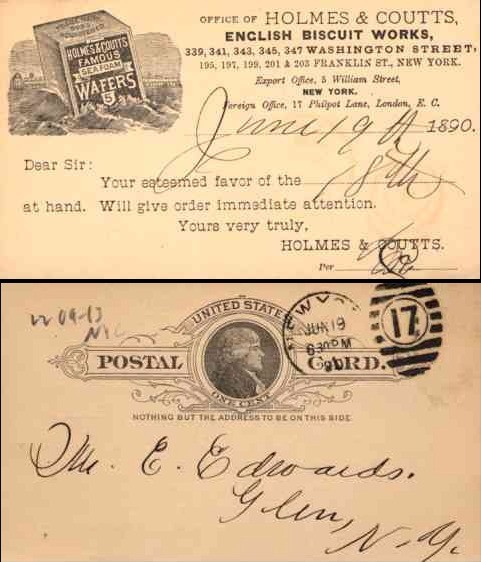 HOLMES & COUTTS
FAMOUS
SEA FOAM
WAFERS
5
OFFICE OF HOLMES & COUTTS,
ENGLISH BISCUIT WORKS,
339, 341, 343, 345, 347 WASHINGTON STREET,
195, 197, 199, 201 & 203 FRANKLIN ST., NEW YORK.
Export Office, 5 William Street,
NEW YORK.
Foreign Office, 17 Philpot Lane, London, E. C.
June 19th 1890.
Dear Sir:
Your esteemed favor of the 18th
at hand. Will give order immediate attention.
Yours very truly,
HOLMES & COUTTS.
Per
NYC
UNITED STATES
POSTAL CARD.
ONE CENT
NOTHING BUT THE ADDRESS TO BE ON THIS SIDE.
JUN 19
630 PM
90
17
Mr. E. Edwards.
Glen,
N.Y.